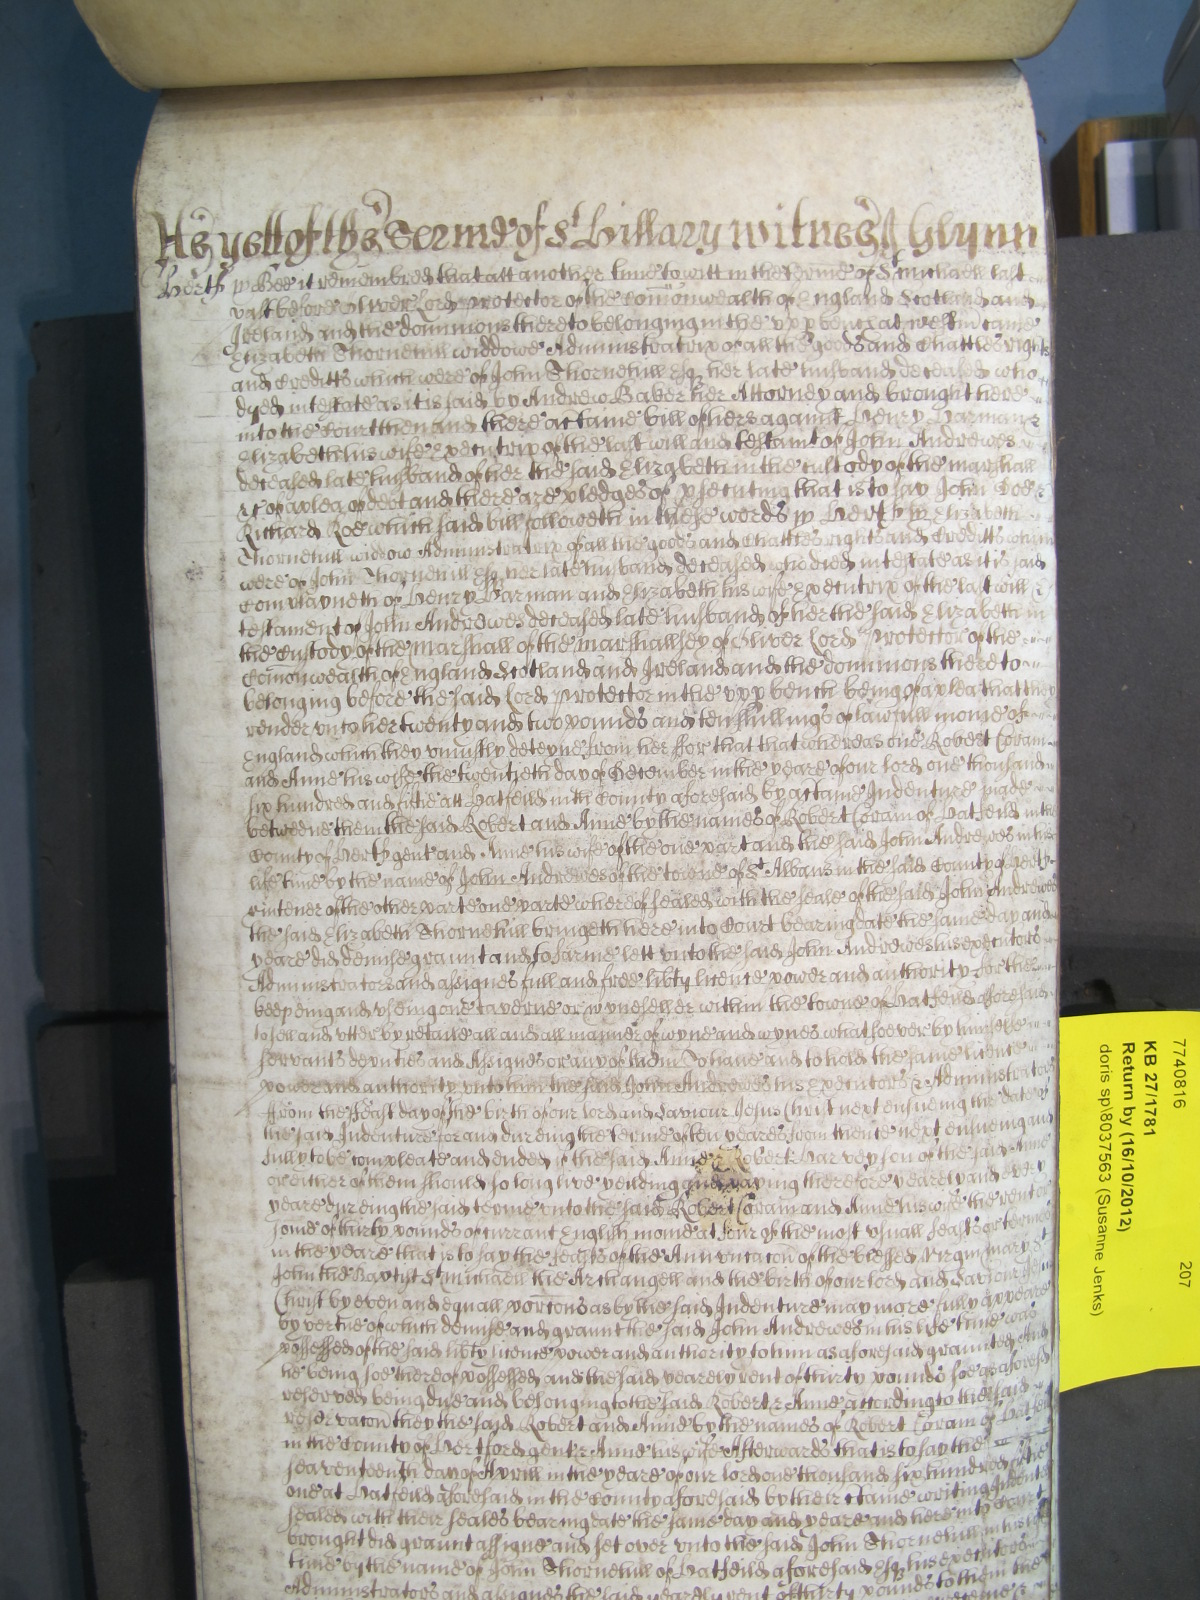 As yett of the Terme of St Hillary witnes J Glynn
Hertf ss Bee it remembred that att another time to witt in the terme of St Michaell last
past before Oliver Lord Protector of the Comonwealth of England Scotland and
Ireland and the dominions thereto belonging in the upp bench at Westm came
Elizabeth Thornehill widdowe Administratrix of all the goods and Chattles rights
and Creditts which were of John Thornehill Esq her late husband deceased who
dyed intestate as it is said by Andrew Baker her Attorney and brought here
into the Court then and there a certaine bill of hers against Henry Harman &
Elizabeth his wife Executrix of the last will and testamt of John Andrewes
deceased late husband of her the said Elizabeth in the custody of the marshall
&c of a plea of debt and there are pledges of prsecuting that is to say John Doe &
Richard Roe which said bill followeth in these words ss Hertf ss Elizabeth
Thornehill widow Administratrix of all the goods and Chattles rights and Creditts which
were of John Thornehill Esq her late husband deceased who died intestate as it is said
Complayneth of Henry Harman and Elizabeth his wife Executrix of the last will &
testament of John Andrewes deceased late husband of her the said Elizabeth in
the Custody of the Marshall of the marshallsey of Oliver Lord Protector of the
Comonwealth of England Scotland and Ireland and the dominions thereto
belonging before the said Lord Protector in the upp bench being of a plea that they
render unto her twenty and two pounds and ten shillings of lawfull monie of
England which they uniustly deteyne from her For that that whereas one Robert Coram
and Anne his wife the twentieth day of December in the yeare of our lord one thousand
six hundred and fiftie att Hatfeild in the County aforesaid by a certaine Indenture made
betweene them the said Robert and Anne by the names of Robert Coram of Hatfeild in the
County of Hertf gent and Anne his wife of the one part and the said John Andrewes in his
life time by the name of John Andrewes of the towne of St Albans in the said County of Hertf
vintener of the other parte one parte whereof sealed with the seale of the said John Andrewes
the said Elizabeth Thornehill bringeth here into Court bearing date the same day and
yeare did demise graunt and to farme lett unto the said John Andrewes his executors
Administrators and assignes full and free libty licence power and authority for the
keepeing and useing one taverne or wyneseller within the towne of Hatfeild aforesaid
to sell and utter by retaile all and all manner of wyne and wynes whatsoever by himselfe
servants deputies and Assignes or any of them To have and to hold the same licence
power and authority unto him the said John Andrewes his Executors & Administrators
from the Feast day of the birth of our lord and Saviour Jesus Christ next ensueing the date of
the said Indenture for and dureing the terme of ten yeares from thence next ensueing and
fully to be compleate and ended if the said Anne & Robert Harvey son of the said Anne
or either of them should so long live yeilding and paying therefore yearely and every
yeare dureing the said terme unto the said Robert Coram and Anne his wife the rent or
some of thirty pounds of currant English monie at four of the most usuall feasts or termes
in the yeare that is to say the feasts of the Annuncacon of the blessed Virgin Mary St
John the Baptist St Michaell the Archangell and the birth of our lord and Saviour Jesus
Christ by even and equall porcons as by the said Indenture may more fully appeare
by vertue of which demise and graunt the said John Andrewes in his life time was
possessed of the said libty licence power and authority to him as aforesaid graunted And
he being soe thereof possessed and the said yearely rent of thirty pounds soe as aforesaid
reserved being due and belonging to the said Robert & Anne according to the said
reservacon they the said Robert and Anne by the names of Robert Coram of Hatfeild
in the County of Hertford gent & Anne his wife Afterwards that is to say the
seaventeenth day of Aprill in the yeare of our lord one thousand six hundred fiftie
one at Hatfeild aforesaid in the County aforesaid by their certaine writing Indented
sealed with their seales bearing date the same day and yeare and here into Court
brought did graunt assigne and set over unto the said John Thornehill in his life
time by the name of John Thornehill of Hatfeild aforesaid Esq his executors
Administrators and assignes the said yearely rent of thirty pounds to them the
7740816 207
KB 27/1781
Return by (16/10/2012)
doris sp\8037563 (Susanne Jenks)